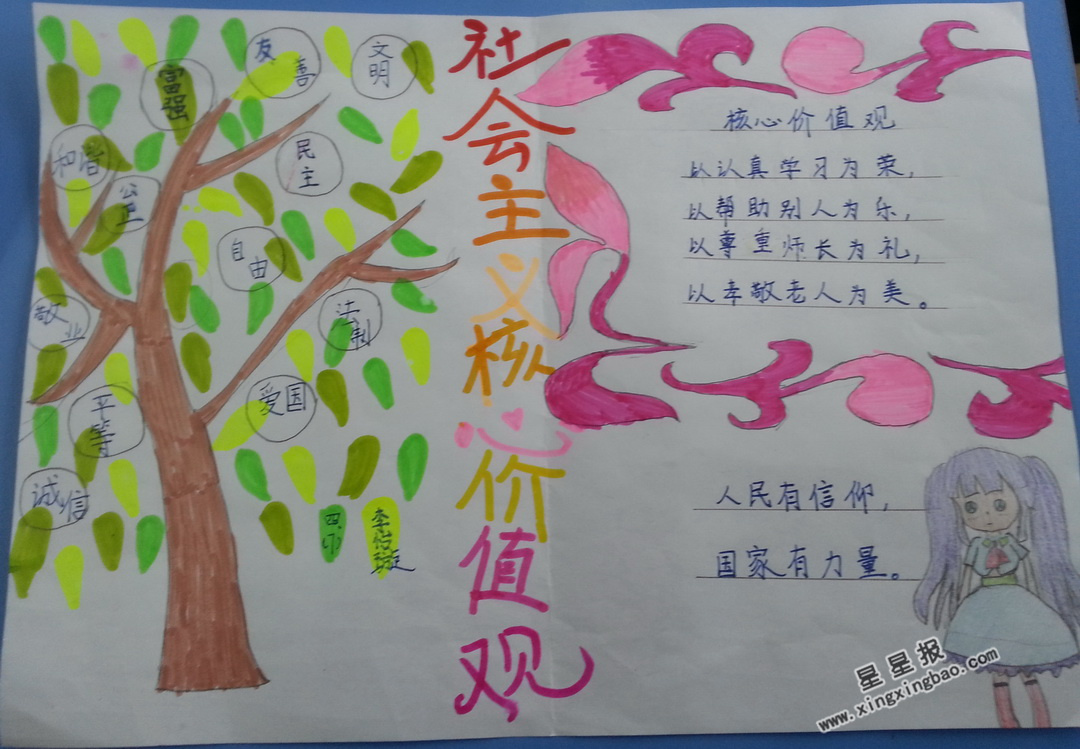 社会主义核心价值观
友善
文明
富强
民主
和谐
公正
自由
敬业
法制
爱国
平等
诚信
核心价值观
以认真学习为荣，
以帮助别人为乐，
以尊重师长为礼，
以孝敬老人为美。
人民有信仰，
国家有力量。
星星报
www.xingxingbao.com